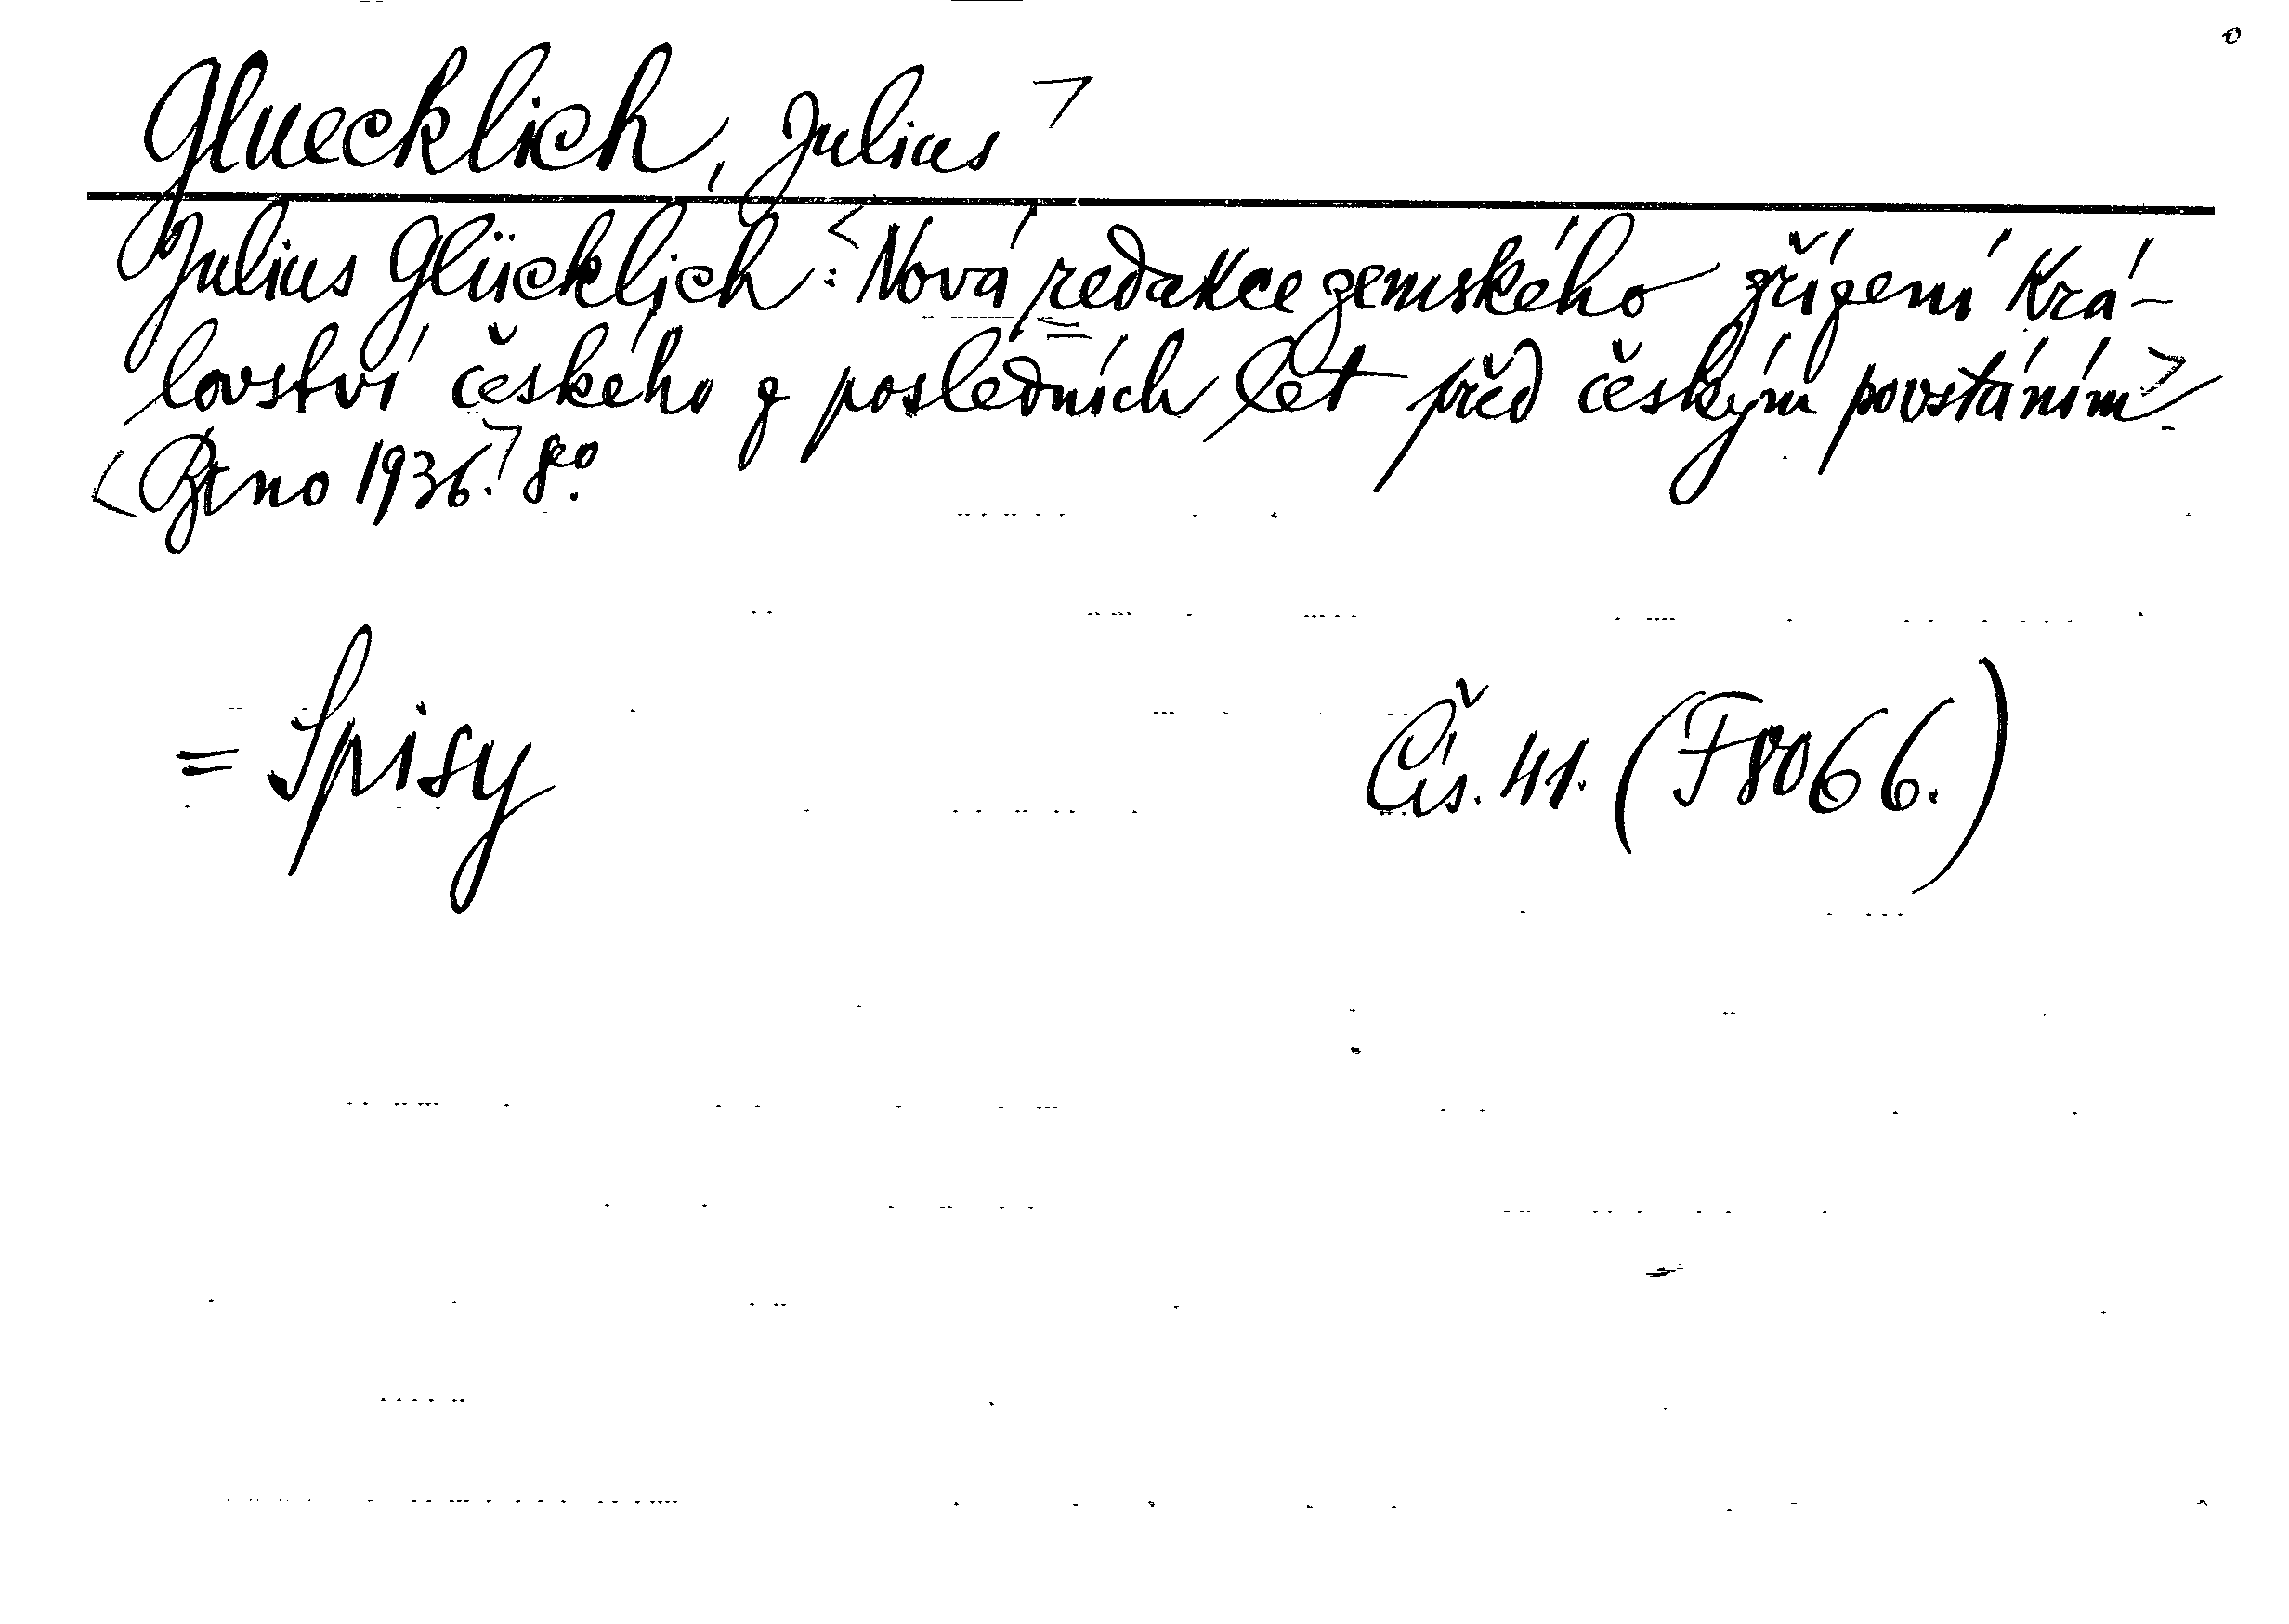 Gluecklich, Julius
Julius Glücklich: Nová redakce zemského zřízení Krá-
lovství českého z posledních let před českým povstáním
Brno 1936. 8⁰.
= Spisy Čís. 41. (F8066.)